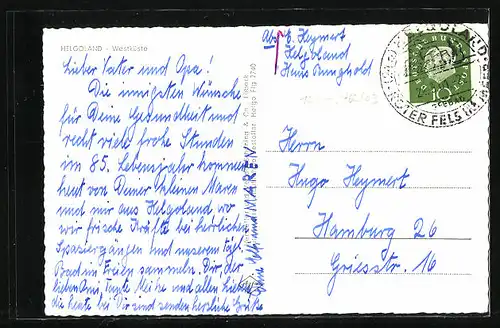 HELGOLAND - Westküste
Lieber Vater und Opa!
Die innigsten Wünsche
für Deine Gesundheit und
recht viele frohe Stunden
im 85. Lebensjahr kommen
heut von Deiner kleinen Maren
und mir aus Helgoland, wo
wir frische Kräfte bei herrlichen
Spaziergängen und unserem tägl.
Bad im Freien sammeln. Dir, der
lieben Omi, Tante und allen Lieben,
die heute bei Dir sind senden herzliche Grüße
MAREN
Abs. E. Heymert
Helgoland
Haus Rungholt
DEUTSCHE BUNDESPOST
10
HELGOLAND
ROTER FELS
Herrn
Hugo Heymert
Hamburg 26
Griesstr. 16